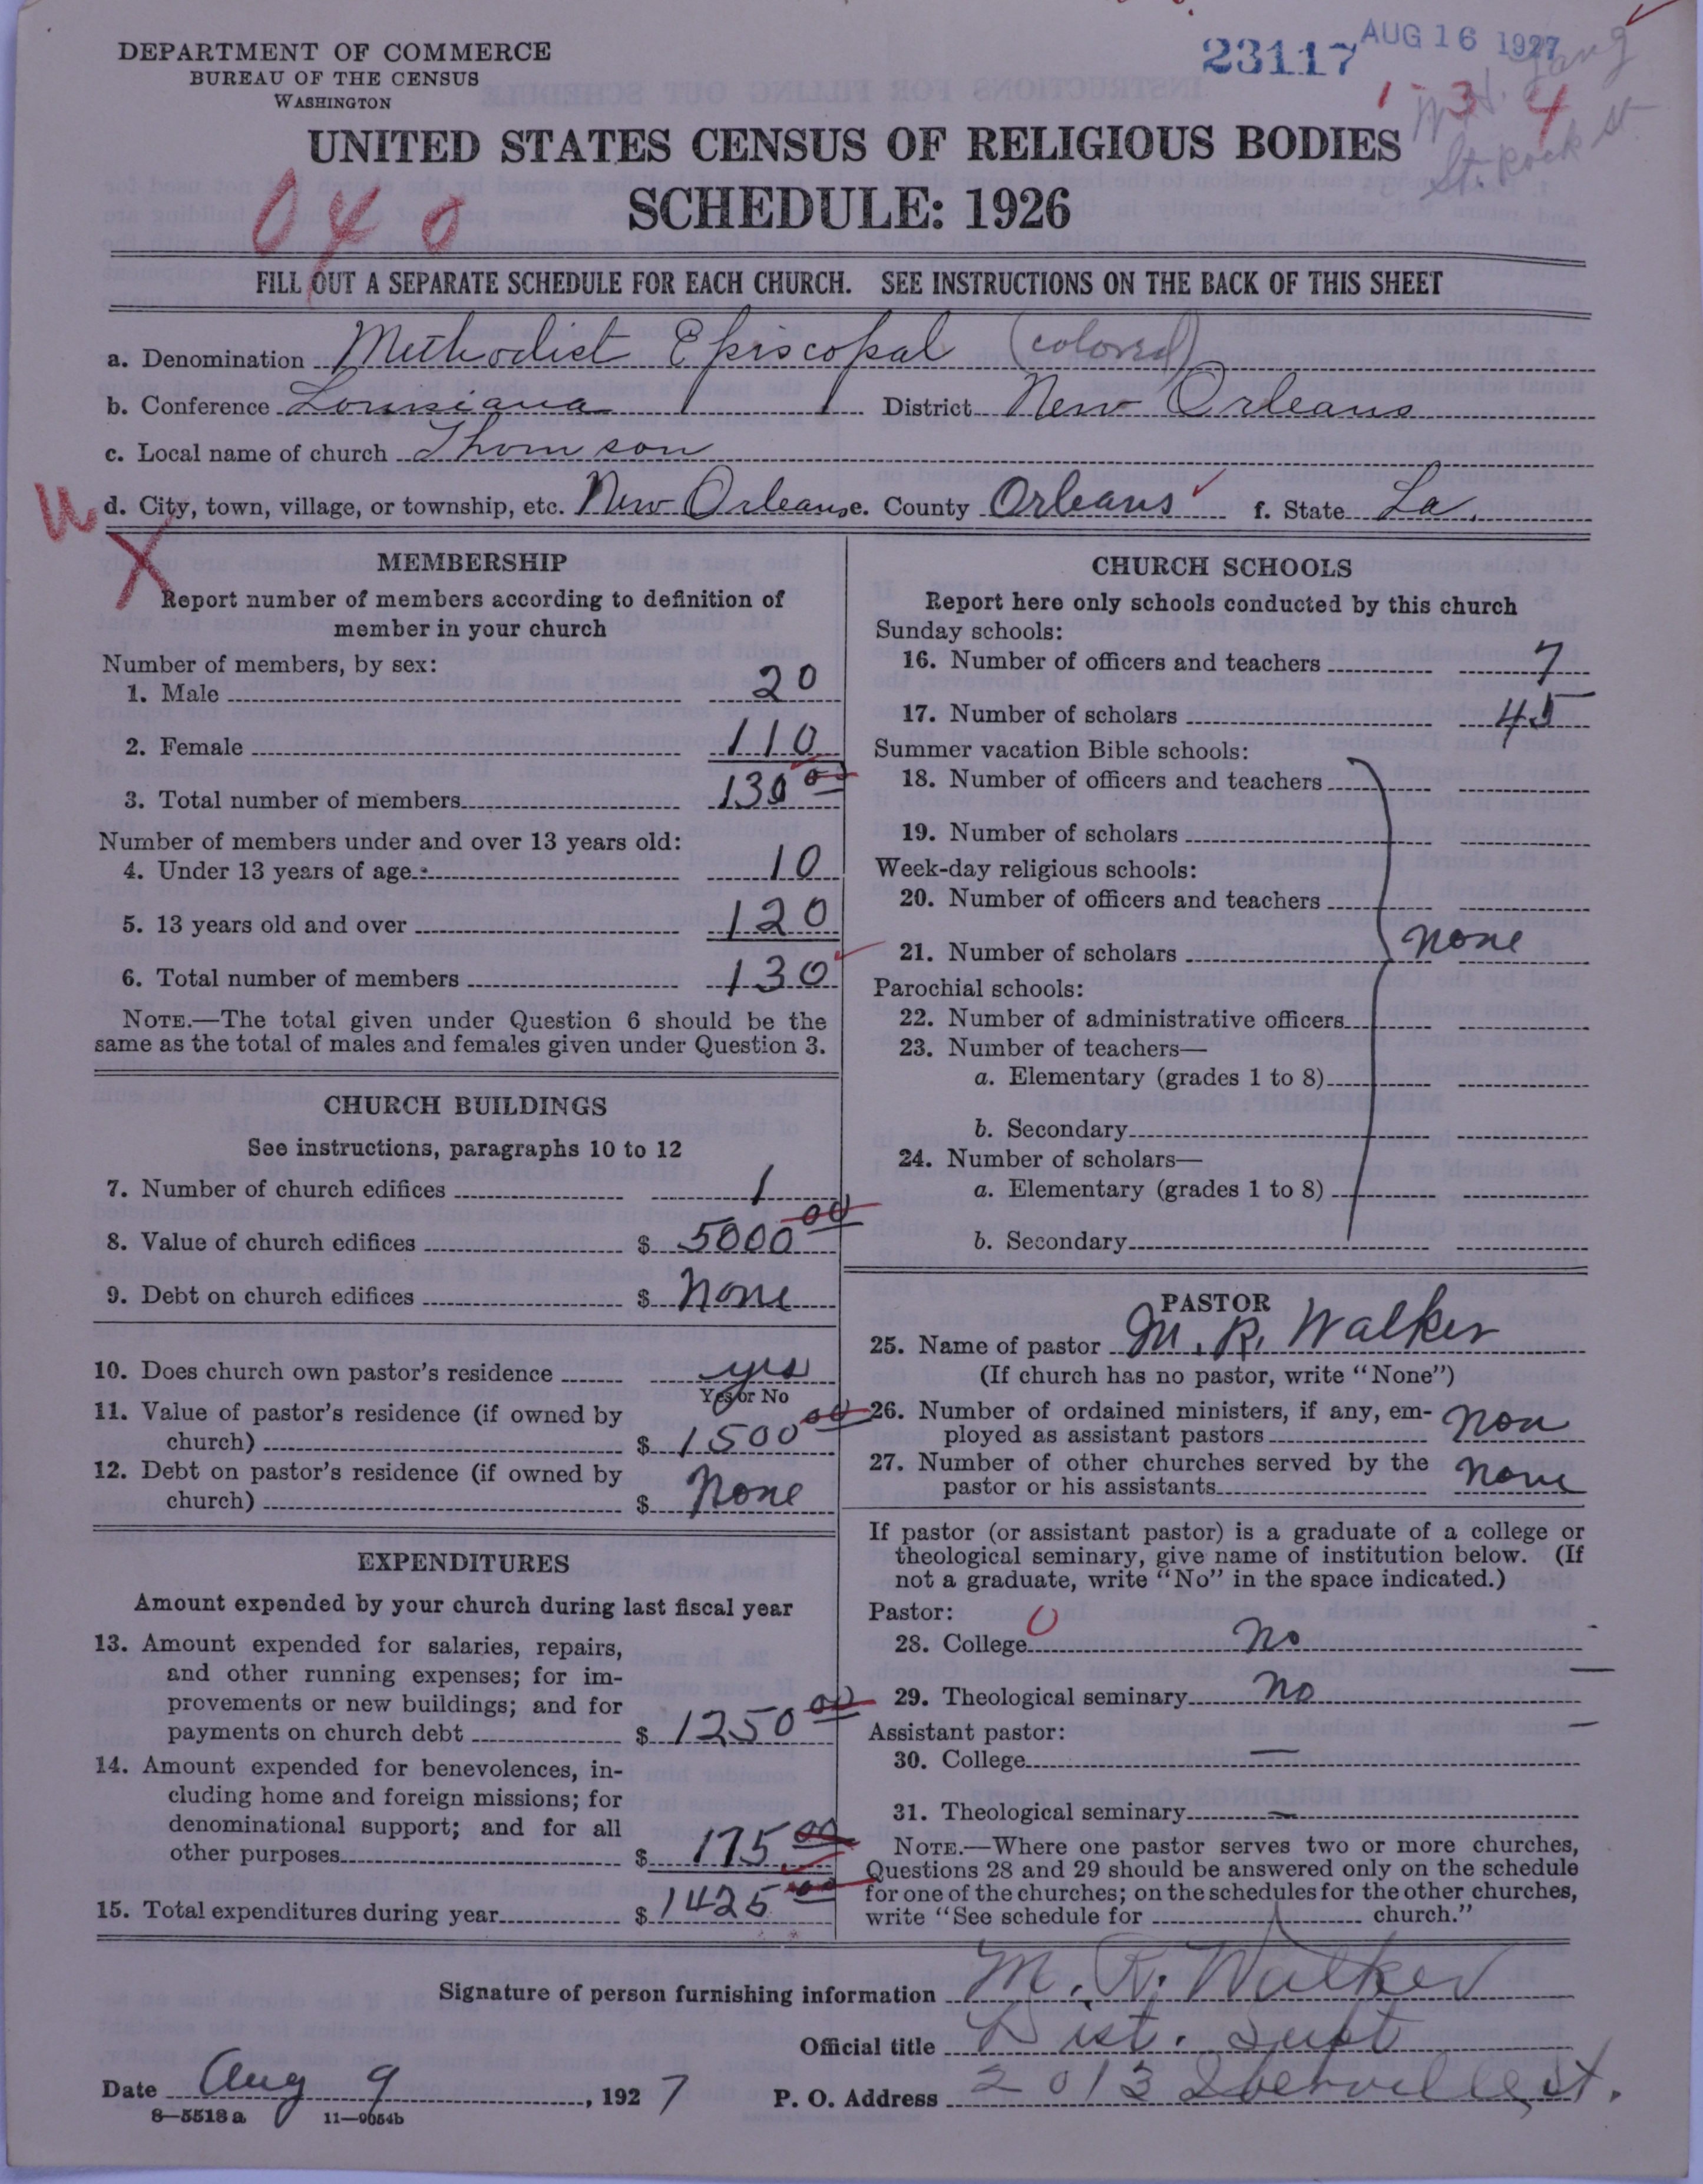 DEPARTMENT OF COMMERCE
BUREAU OF THE CENSUS
WASHINGTON
23117
AUG 16 1927
1 - 3 4
St. Rock St.
UNITED STATES CENSUS OF RELIGIOUS BODIES
SCHEDULE: 1926
FILL OUT A SEPARATE SCHEDULE FOR EACH CHURCH. SEE INSTRUCTIONS ON THE BACK OF THIS SHEET
a. Denomination Methodist Episcopal (colored)
b. Conference Louisiana District New Orleans
c. Local name of church Thomson
d. City, town, village, or township, etc. New Orleans e. County Orleans f. State La.
MEMBERSHIP
Report number of members according to definition of
member in your church
Number of members, by sex:
1. Male 20
2. Female 110
3. Total number of members 130 00
Number of members under and over 13 years old:
4. Under 13 years of age 10
5. 13 years old and over 120
6. Total number of members 130
NOTE.—The total given under Question 6 should be the
same as the total of males and females given under Question 3.
CHURCH BUILDINGS
See instructions, paragraphs 10 to 12
7. Number of church edifices 1
8. Value of church edifices $ 5000 00
9. Debt on church edifices $ None
10. Does church own pastor's residence yes
Yes or No
11. Value of pastor's residence (if owned by
church) $ 1500 00
12. Debt on pastor's residence (if owned by
church) $ None
EXPENDITURES
Amount expended by your church during last fiscal year
13. Amount expended for salaries, repairs,
and other running expenses; for im-
provements or new buildings; and for
payments on church debt $ 1250 00
14. Amount expended for benevolences, in-
cluding home and foreign missions; for
denominational support; and for all
other purposes $ 175 00
15. Total expenditures during year $ 1425 00
CHURCH SCHOOLS
Report here only schools conducted by this church
Sunday schools:
16. Number of officers and teachers 7
17. Number of scholars 45
Summer vacation Bible schools:
18. Number of officers and teachers
19. Number of scholars
Week-day religious schools:
20. Number of officers and teachers
21. Number of scholars none
Parochial schools:
22. Number of administrative officers
23. Number of teachers—
a. Elementary (grades 1 to 8)
b. Secondary
24. Number of scholars—
a. Elementary (grades 1 to 8)
b. Secondary
PASTOR
25. Name of pastor M. R. Walker
(If church has no pastor, write "None")
26. Number of ordained ministers, if any, em-
ployed as assistant pastors non
27. Number of other churches served by the
pastor or his assistants none
If pastor (or assistant pastor) is a graduate of a college or
theological seminary, give name of institution below. (If
not a graduate, write "No" in the space indicated.)
Pastor:
28. College No
29. Theological seminary No
Assistant pastor:
30. College —
31. Theological seminary —
NOTE.—Where one pastor serves two or more churches,
Questions 28 and 29 should be answered only on the schedule
for one of the churches; on the schedules for the other churches,
write "See schedule for church."
Signature of person furnishing information M. R. Walker
Official title Dist. Supt
Date Aug 9, 1927 P. O. Address 2013 Iberville St.
8—5518 a 11—9054b